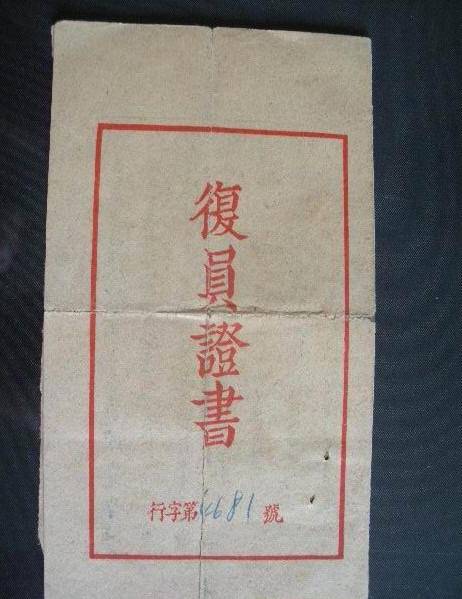 復員證書
行字第4681號